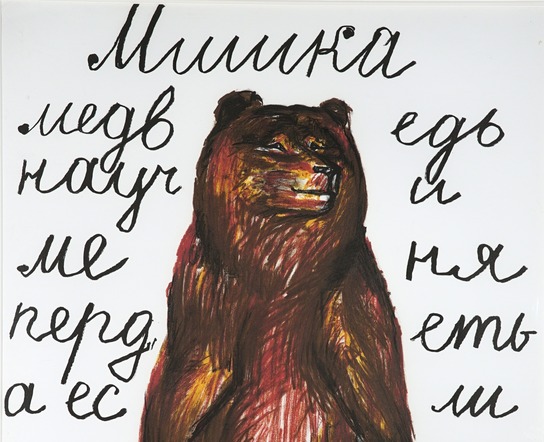 Мишка
медв едь
науч и
ме ня
перд еть
а ес ли